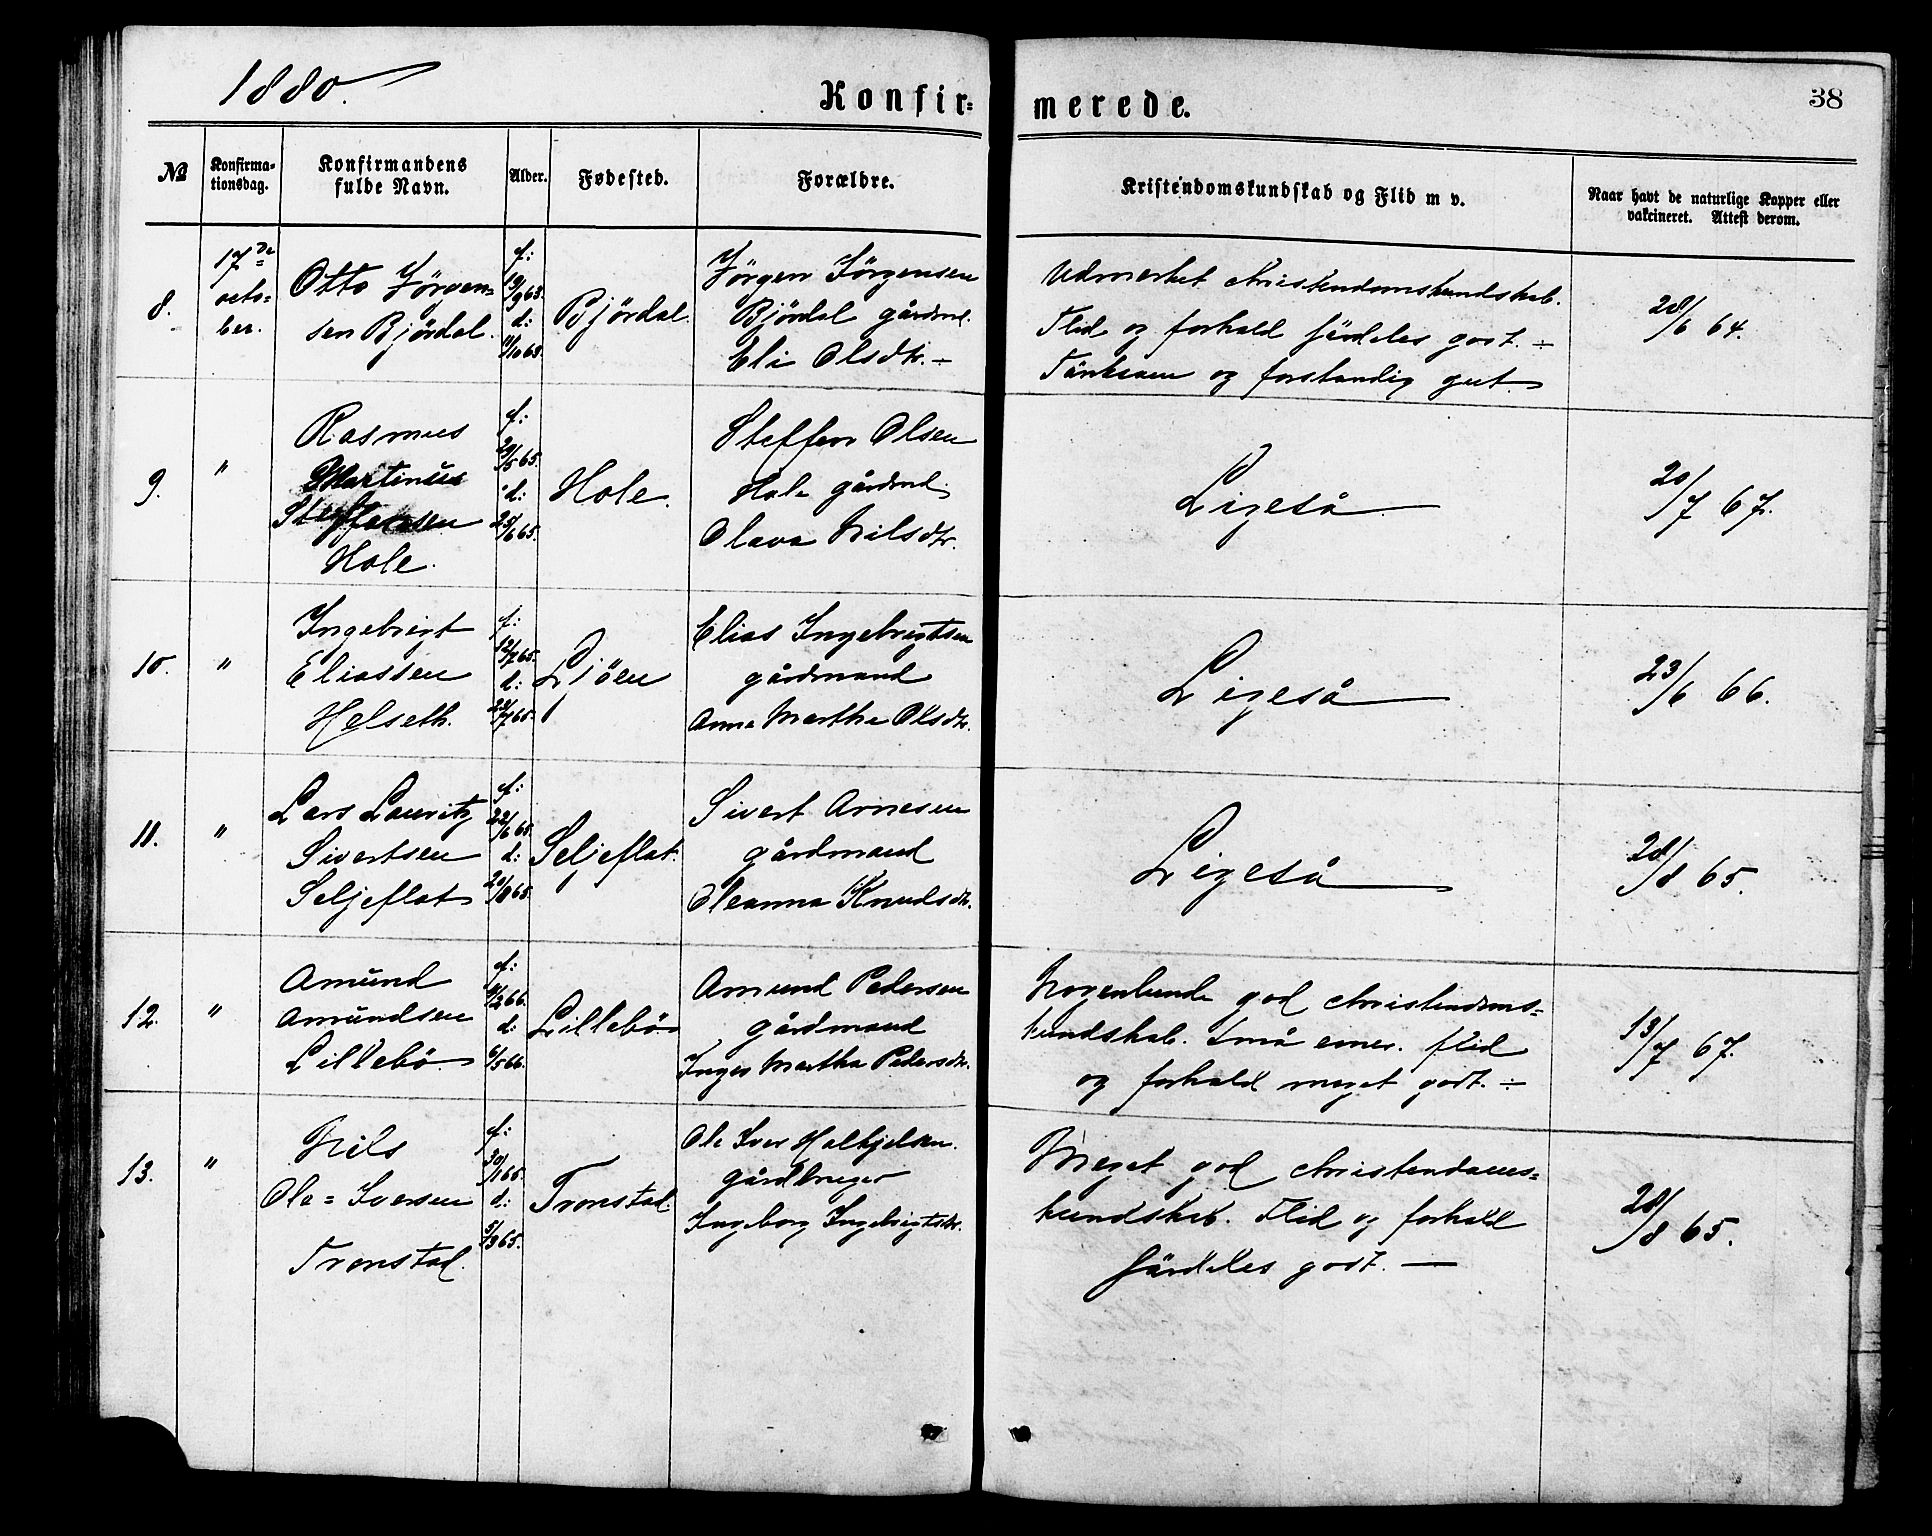 1880.
Konfir=
merede.
38
No
Konfirma-
tionsdag.
Konfirmandens
fulde Navn.
Alder.
Fødested.
Forældre.
Kristendomskundskab og Flid m v.
Naar havt de naturlige Kopper eller
vakcineret. Attest derom.
8.
17de
octo-
ber.
Otto Jörgen=
sen Björdal.
f:
19/9 63.
d:
11/10 63.
Björdal.
Jörgen Jörgensen
Björdal gårdmd.
Eli Olsdtr. ÷
Udmerket christendomskundskab.
Flid og forhold särdeles godt. ÷
Tänksom og forstandig gut
28/6 64.
9.
"
Rasmus
Martinus
Steffensen
Hole.
f:
29/5 65.
d:
25/6 65.
Hole.
Steffen Olsen
Hole gårdmd.
Olava Nilsdtr.
Ligeså
20/7 67.
10.
"
Ingebrigt
Eliassen
Helseth.
f:
12/7 65.
d:
23/7 65.
Ljöen
Elias Ingebrigtsen
gårdmand
Anna Martha Olsdtr.
Ligeså
23/6 66.
11.
"
Lars Lauritz
Sivertsen
Seljeflot
f:
22/6 65.
d:
20/8 65.
Seljeflot.
Sivert Arnesen
gårdmand
Oleanna Knudsdtr.
Ligeså
28/8 65.
12.
"
Amund
Amundsen
Lillebö
f:
11/2 66.
d:
6/5 66.
Lillebö
Amund Pedersen
gårdmand
Inger Martha Pedersdtr.
Nogenlunde god christendoms=
kundskab. Små evner. flid
og forhold meget godt. ÷
13/7 67.
13.
"
Nils
Ole=Iversen
Tronstad.
f:
30/1 65.
d:
5/3 65.
Tronstad.
Ole Iver Halkjelsen.
gårdbruger
Ingeborg Ingebrigtsdtr.
Meget god christendoms=
kundskab. Flid og forhold
särdeles godt. —
28/8 65.